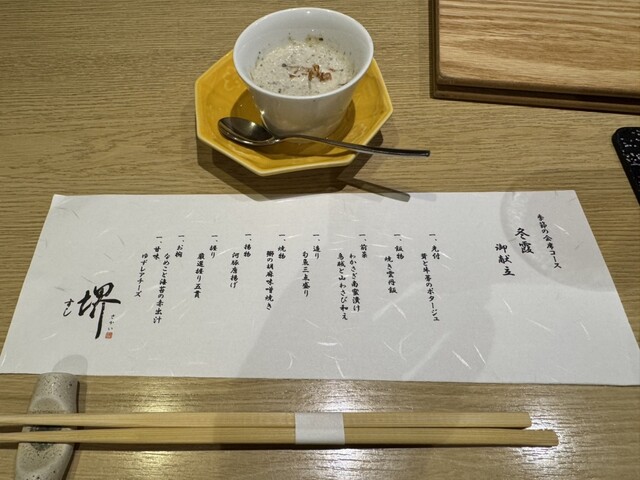 季節の会席コース
冬霞
御献立
一、先付
蕈と牛蒡のポタージュ
一、飯物
焼き雲丹飯
一、前菜
わかさぎ南蛮漬け
鳥賊と山わさび和え
一、造り
旬魚三点盛り
一、焼物
鰤の胡麻味噌焼き
一、揚物
河豚唐揚げ
一、握り
厳選握り五貫
一、お椀
なめこと海苔の赤出汁
一、甘味
ゆずレアチーズ
すし
堺
さかい